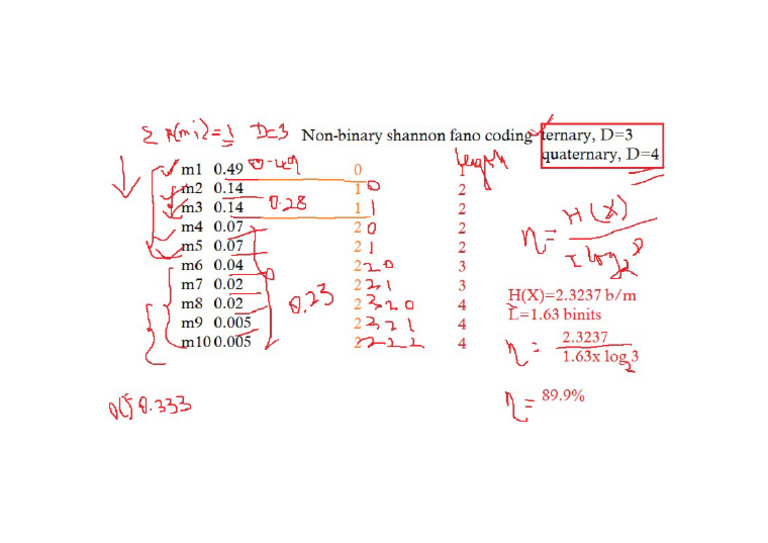 Σ P(mi)=1 D=3 Non-binary shannon fano coding ternary, D=3
quaternary, D=4
length
m1 0.49 0.49 0 1
m2 0.14 1 0 2
m3 0.14 0.28 1 1 2
m4 0.07 2 0 2
m5 0.07 2 1 2
m6 0.04 2 2 0 3
m7 0.02 2 2 1 3
m8 0.02 0.23 2 2 2 0 4
m9 0.005 2 2 2 1 4
m10 0.005 2 2 2 2 4
0.333
η = H(X)
L log2 D
H(X)=2.3237 b/m
L=1.63 binits
η = 2.3237
1.63x log2 3
η = 89.9%